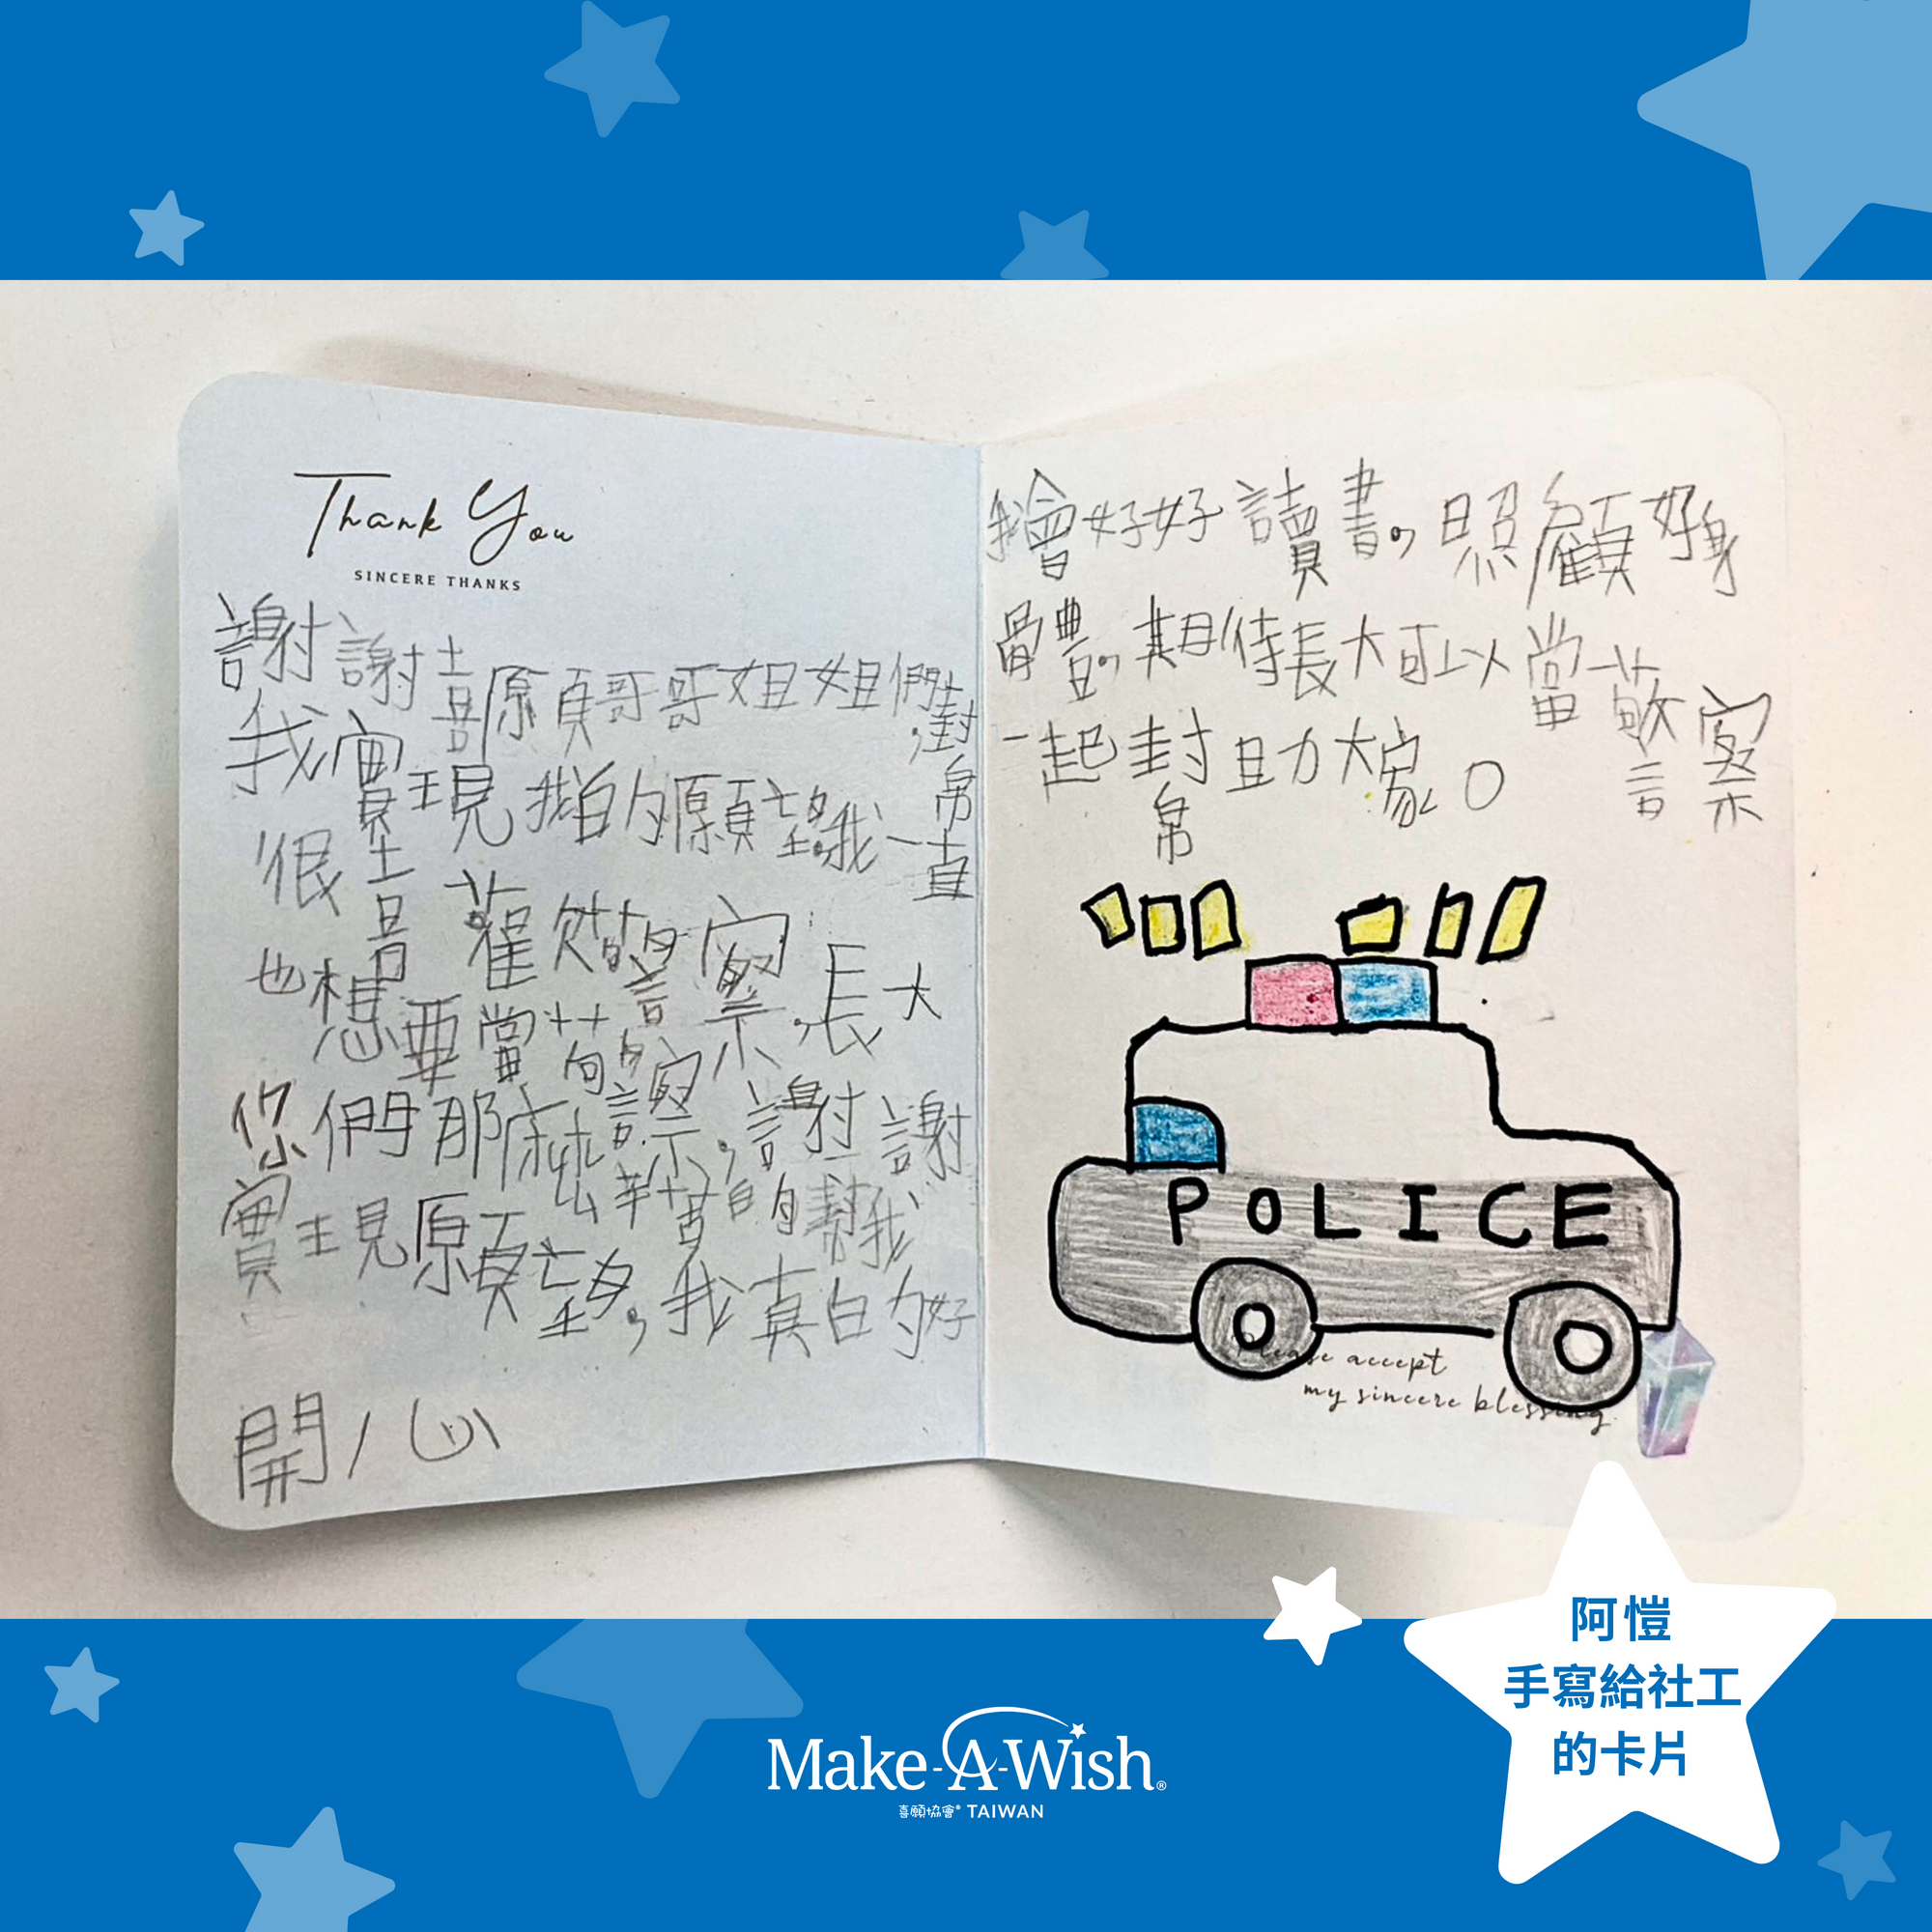 Thank You
SINCERE THANKS
謝謝喜願哥哥姐姐們,幫
我實現我的願望。我一直
很喜歡警察,長大
也想要當警察,謝謝
你們那麼辛苦的幫我
實現願望,我真的好
開心
我會好好讀書,照顧好身
體,期待長大可以當警察
一起幫助大家。
POLICE
Please accept
my sincere blessing.
阿愷
手寫給社工
的卡片
Make-A-Wish®
喜願協會® TAIWAN